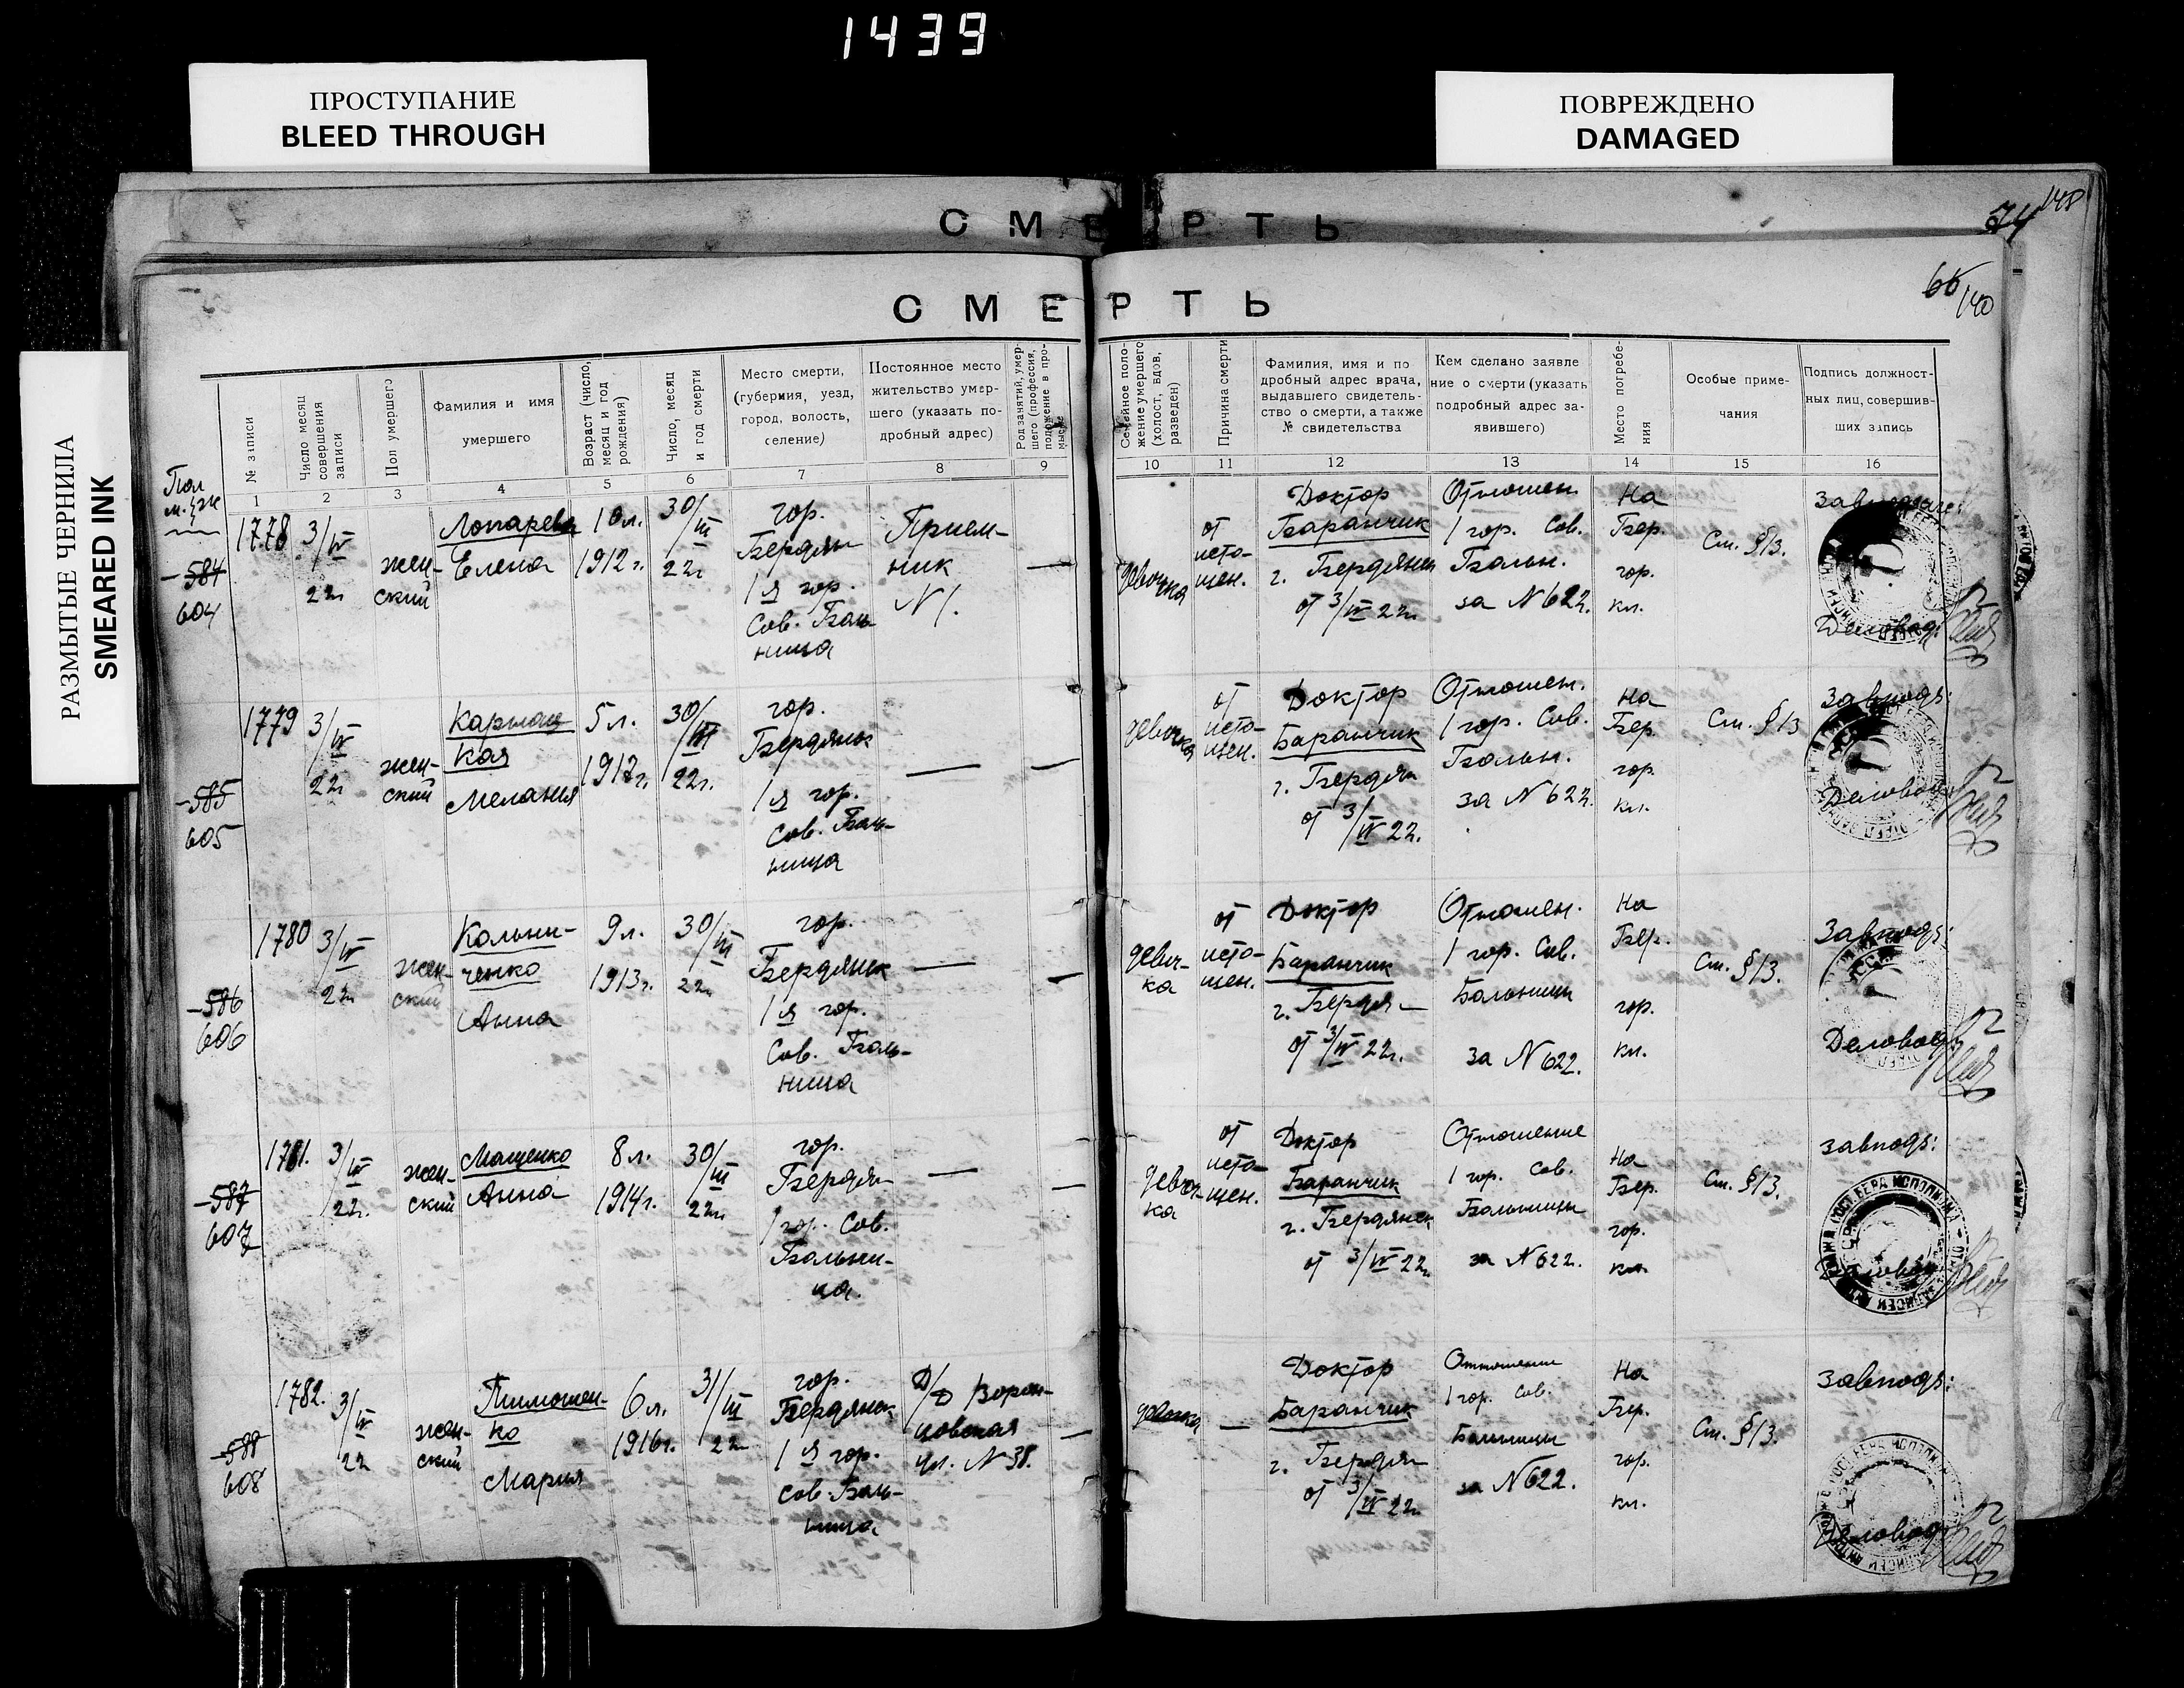 1439
ПРОСТУПАНИЕ
BLEED THROUGH
ПОВРЕЖДЕНО
DAMAGED
РАЗМЫТЫЕ ЧЕРНИЛА
SMEARED INK
СМЕРТЬ
74
148
СМЕРТЬ
66
140
№ записи
Число месяц совершения записи
Пол умершего
Фамилия и имя
умершего
Возраст (число, месяц и год рождения)
Число, месяц и год смерти
Место смерти,
(губерния, уезд,
город, волость,
селение)
Постоянное место
жительство умер-
шего (указать по-
дробный адрес)
Род занятий, умер-
шего (профессия,
положение в про-
мысле
Семейное поло-
жение умершего
(холост, вдов,
разведен)
Причина смерти
Фамилия, имя и по
дробный адрес врача,
выдавшего свидетель-
ство о смерти, а также
№ свидетельства
Кем сделано заявле
ние о смерти (указать
подробный адрес за-
явившего)
Место погребе-
ния
Особые приме-
чания
Подпись должност-
ных лиц, совершив-
ших запись
1 2 3 4 5 6 7 8 9 10 11 12 13 14 15 16
Пол
м. ж
584
604
1778
3/IV
22г
жен-
ский
Лопарева
Елена
10л.
1912г.
30/III
22г
гор.
Бердян
1я гор.
Сов. Боль-
ница
Прием-
ник
N 1.
—
девочка
от
исто-
щен.
Доктор
Баранчик
г. Бердянск
от 3/IV 22г.
Отношен.
1 гор. Сов.
Больн.
за N 622.
На
Бер.
гор.
кл.
См. §13.
Деловод:
585
605
1779
3/IV
22г
жен-
ский
Карнац
кая
Мелания
5л.
1917г.
30/III
22г.
гор.
Бердянск
1я гор.
Сов. Боль-
ница
—
—
девочка
от
исто-
щен.
Доктор
Баранчик
г. Бердян
от 3/IV 22.
Отношен.
1 гор. Сов.
Больн.
за N 622.
На
Бер.
гор.
кл.
См. §13
Завподз:
Деловод:
586
606
1780
3/IV
22г
жен-
ский
Кальни-
ченко
Анна
9л.
1913г.
30/III
22г
гор.
Бердянск
1я гор.
Сов. Боль-
ница
—
—
девоч-
ка
от
исто-
щен.
Доктор
Баранчик
г. Бердян
от 3/IV 22г.
Отношен.
1 гор. Сов.
Больницы
за N 622.
На
Бер.
гор.
кл.
См. §13.
Завподз:
Деловод:
587
607
1781.
3/IV
22г.
жен-
ский
Мащенко
Анна
8л.
1914г.
30/III
22г
гор.
Бердян
1 гор. Сов.
Больни-
ца.
—
—
девоч-
ка
от
исто-
щен.
Доктор
Баранчик
г. Бердянск
от 3/IV 22г
Отношение
1 гор. Сов.
Больницы
за N 622.
На
Бер.
гор.
кл.
См. §13.
завподз:
Деловод:
588
608
1782.
3/IV
22
жен-
ский
Тимошен-
ко
Мария
6л.
1916г.
31/III
22
гор.
Бердянск
1я гор.
Сов. Боль-
ница
Д/Д Ворон-
цовская
ул. N 38.
—
девочка
—
Доктор
Баранчик
г. Бердян
от 3/IV 22г
Отношение
1 гор. Сов.
Больницы
за N 622.
На
Бер.
гор.
кл.
См. §13.
завподз:
Деловод: